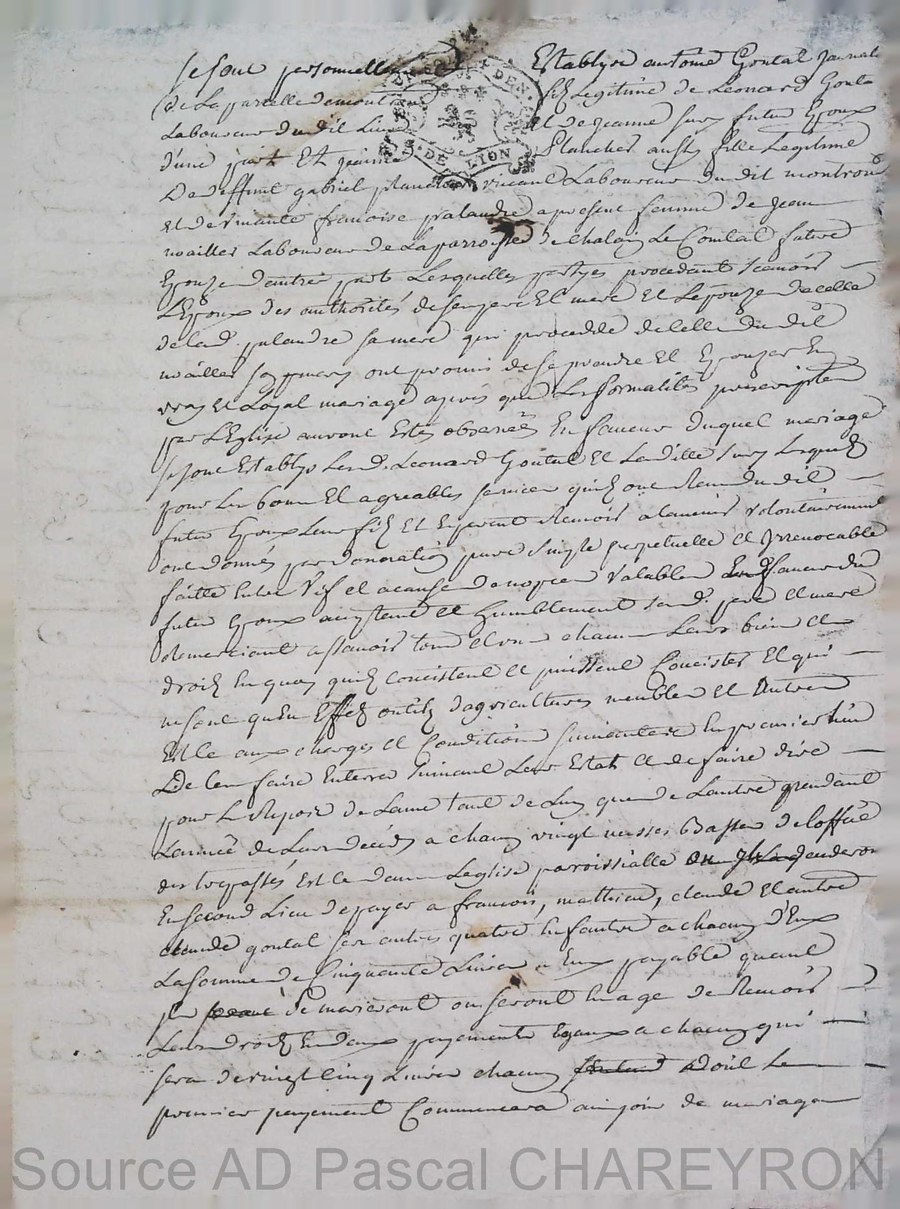 se sont personnellement Establys antoine Goutal Journalie
de La parcelle de montrond fils Legitime de Leonard Gouta
Laboureur du dit Lieu et de jeanne futur Epoux
d'une part Et jeanne Planchet aussy fille Legitime
De deffunt gabriel planchet vivant Laboureur du dit montrond
et de vivante francoise palandre a present femme de jean
noailler Laboureur de La parroisse de chalain Le Comtal future
Epouze d'autre part Lesquelles partyes procedant scavoir
L'Epoux des authorités de ses pere Et mere et L'epouze de celle
de lad. palandre sa mere qui procedde de celle du dit
noailler ont promis de se prandre Et Epouzer En
vray et Loyal mariage apres que Les formalités prescriptes
par L'Eglise auront Estés observées En faveur duquel mariage
se sont Establys Lesd. Leonard Goutal Et Laditte Lesquels
pour Les bons Et agreables services quils ont Receu du dit
futur Epoux Leur fils Et Esperent Recevoir a lavenir volontairement
ont donnés par donnation pure simple perpetuelle et Irrevocable
faitte Entre Vifs et a cause de nopces valables En faveur du
futur Epoux acceptent et humblement sesd. pere et mere
Remerciant assavoir tous et un chacun Leurs biens et
droits En quoy quils concistent et puissent Concister Et qui
ne sont qu'en Effets outils d'agricultures meubles et Autres
Et ce aux charges et Conditions suivantes En premier lieu
De les faire Enterrer suivant Leur Estat et de faire dire
pour Le Repos de L'ame tant de Lun que de Lautre pendant
Lannée de Leurs décés a chacun vingt messes Basses de L'office
des trepassés Et ce dans Leglise paroissialle
En second Lieu de payer a francois, mathieu, claude Et autre
claude goutal ses autres quatre Enfants a chacun d'Eux
La somme de Cinquante Livres a Eux payable quand
se marieront ou seront En age de Recevoir
Leurs droits En deux payements Egaux a chacun qui
sera de vingt Cinq Livres chacun dont Le
premier payement Commencera au jour de mariage
DE LION
Source AD Pascal CHAREYRON